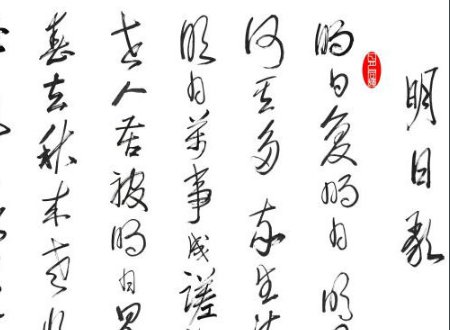 明日歌
明日复明日明
何其多我生待
明日萬事成蹉
世人若被明日累
春去秋来老将